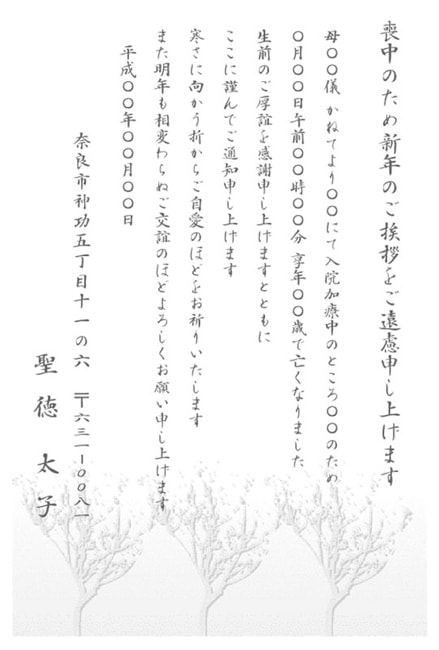 喪中のため新年のご挨拶をご遠慮申し上げます
母〇〇儀 かねてより〇〇にて入院加療中のところ〇〇のため
〇月〇〇日午前〇〇時〇〇分 享年〇〇歳で亡くなりました
生前のご厚誼を感謝申し上げますとともに
ここに謹んでご通知申し上げます
寒さに向かう折からご自愛のほどをお祈りいたします
また明年も相変わらぬご交誼のほどよろしくお願い申し上げます
平成〇〇年〇〇月〇〇日
奈良市神功五丁目十一の六 〒六三一-〇〇八一
聖徳 太子